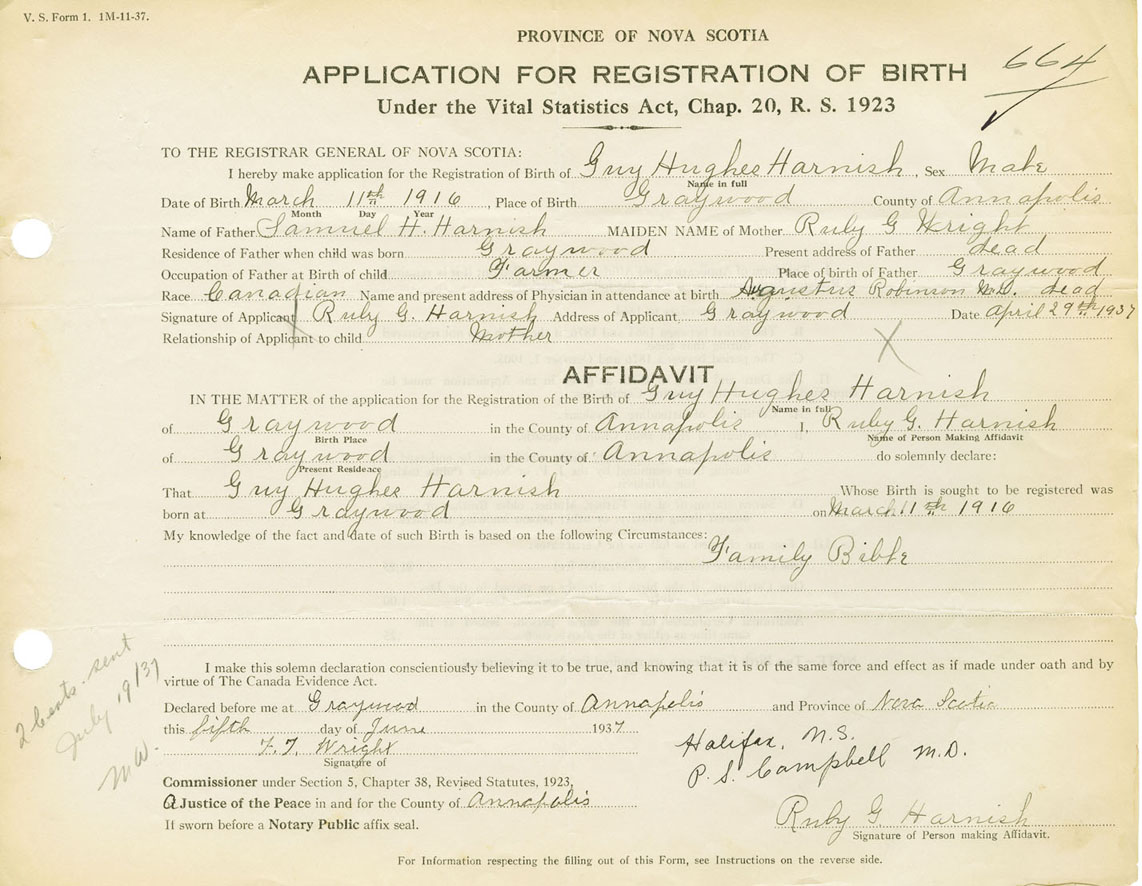 V. S. Form 1. 1M-11-37.
PROVINCE OF NOVA SCOTIA
664
APPLICATION FOR REGISTRATION OF BIRTH
Under the Vital Statistics Act, Chap. 20, R. S. 1923
TO THE REGISTRAR GENERAL OF NOVA SCOTIA:
I hereby make application for the Registration of Birth of Guy Hughes Harnish, Sex Male
Name in full
Date of Birth March 11th 1916, Place of Birth Graywood County of Annapolis
Month Day Year
Name of Father Samuel H. Harnish MAIDEN NAME of Mother Ruby G Wright
Residence of Father when child was born Graywood Present address of Father dead
Occupation of Father at Birth of child Farmer Place of birth of Father Graywood
Race Canadian Name and present address of Physician in attendance at birth Augustus Robinson M.D. dead
Signature of Applicant X Ruby G. Harnish Address of Applicant Graywood Date April 29th 1937
Relationship of Applicant to child Mother X
AFFIDAVIT
IN THE MATTER of the application for the Registration of the Birth of Guy Hughes Harnish
Name in full
of Graywood in the County of Annapolis I, Ruby G. Harnish
Birth Place Name of Person Making Affidavit
of Graywood in the County of Annapolis do solemnly declare:
Present Residence
That Guy Hughes Harnish Whose Birth is sought to be registered was
born at Graywood on March 11th 1916
My knowledge of the fact and date of such Birth is based on the following Circumstances: Family Bible
I make this solemn declaration conscientiously believing it to be true, and knowing that it is of the same force and effect as if made under oath and by
virtue of The Canada Evidence Act.
Declared before me at Graywood in the County of Annapolis and Province of Nova Scotia
this fifth day of June 1937
F. T. Wright
Signature of
Halifax, N.S.
P. S. Campbell M.D.
Commissioner under Section 5, Chapter 38, Revised Statutes, 1923,
A Justice of the Peace in and for the County of Annapolis
If sworn before a Notary Public affix seal.
Ruby G Harnish
Signature of Person making Affidavit.
For Information respecting the filling out of this Form, see Instructions on the reverse side.
2 Certs. sent
July 19/37
MW.